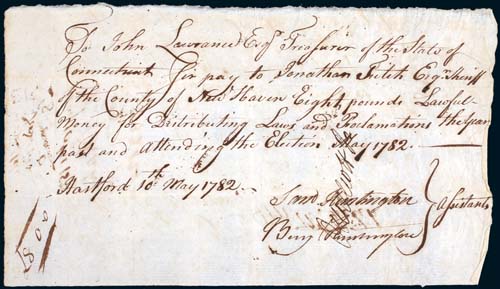 To John Lawrance Esqr Treasurer of the State of
Connecticut Sir pay to Jonathan Fitch Esqr Sheriff
of the County of New Haven Eight pounds Lawful
Money for Distributing Laws and Proclamations the Year
past and Attending the Election May 1782.
Hartford 10th May 1782.
Saml Huntington
Benj Huntington
Assistants
8 0 0